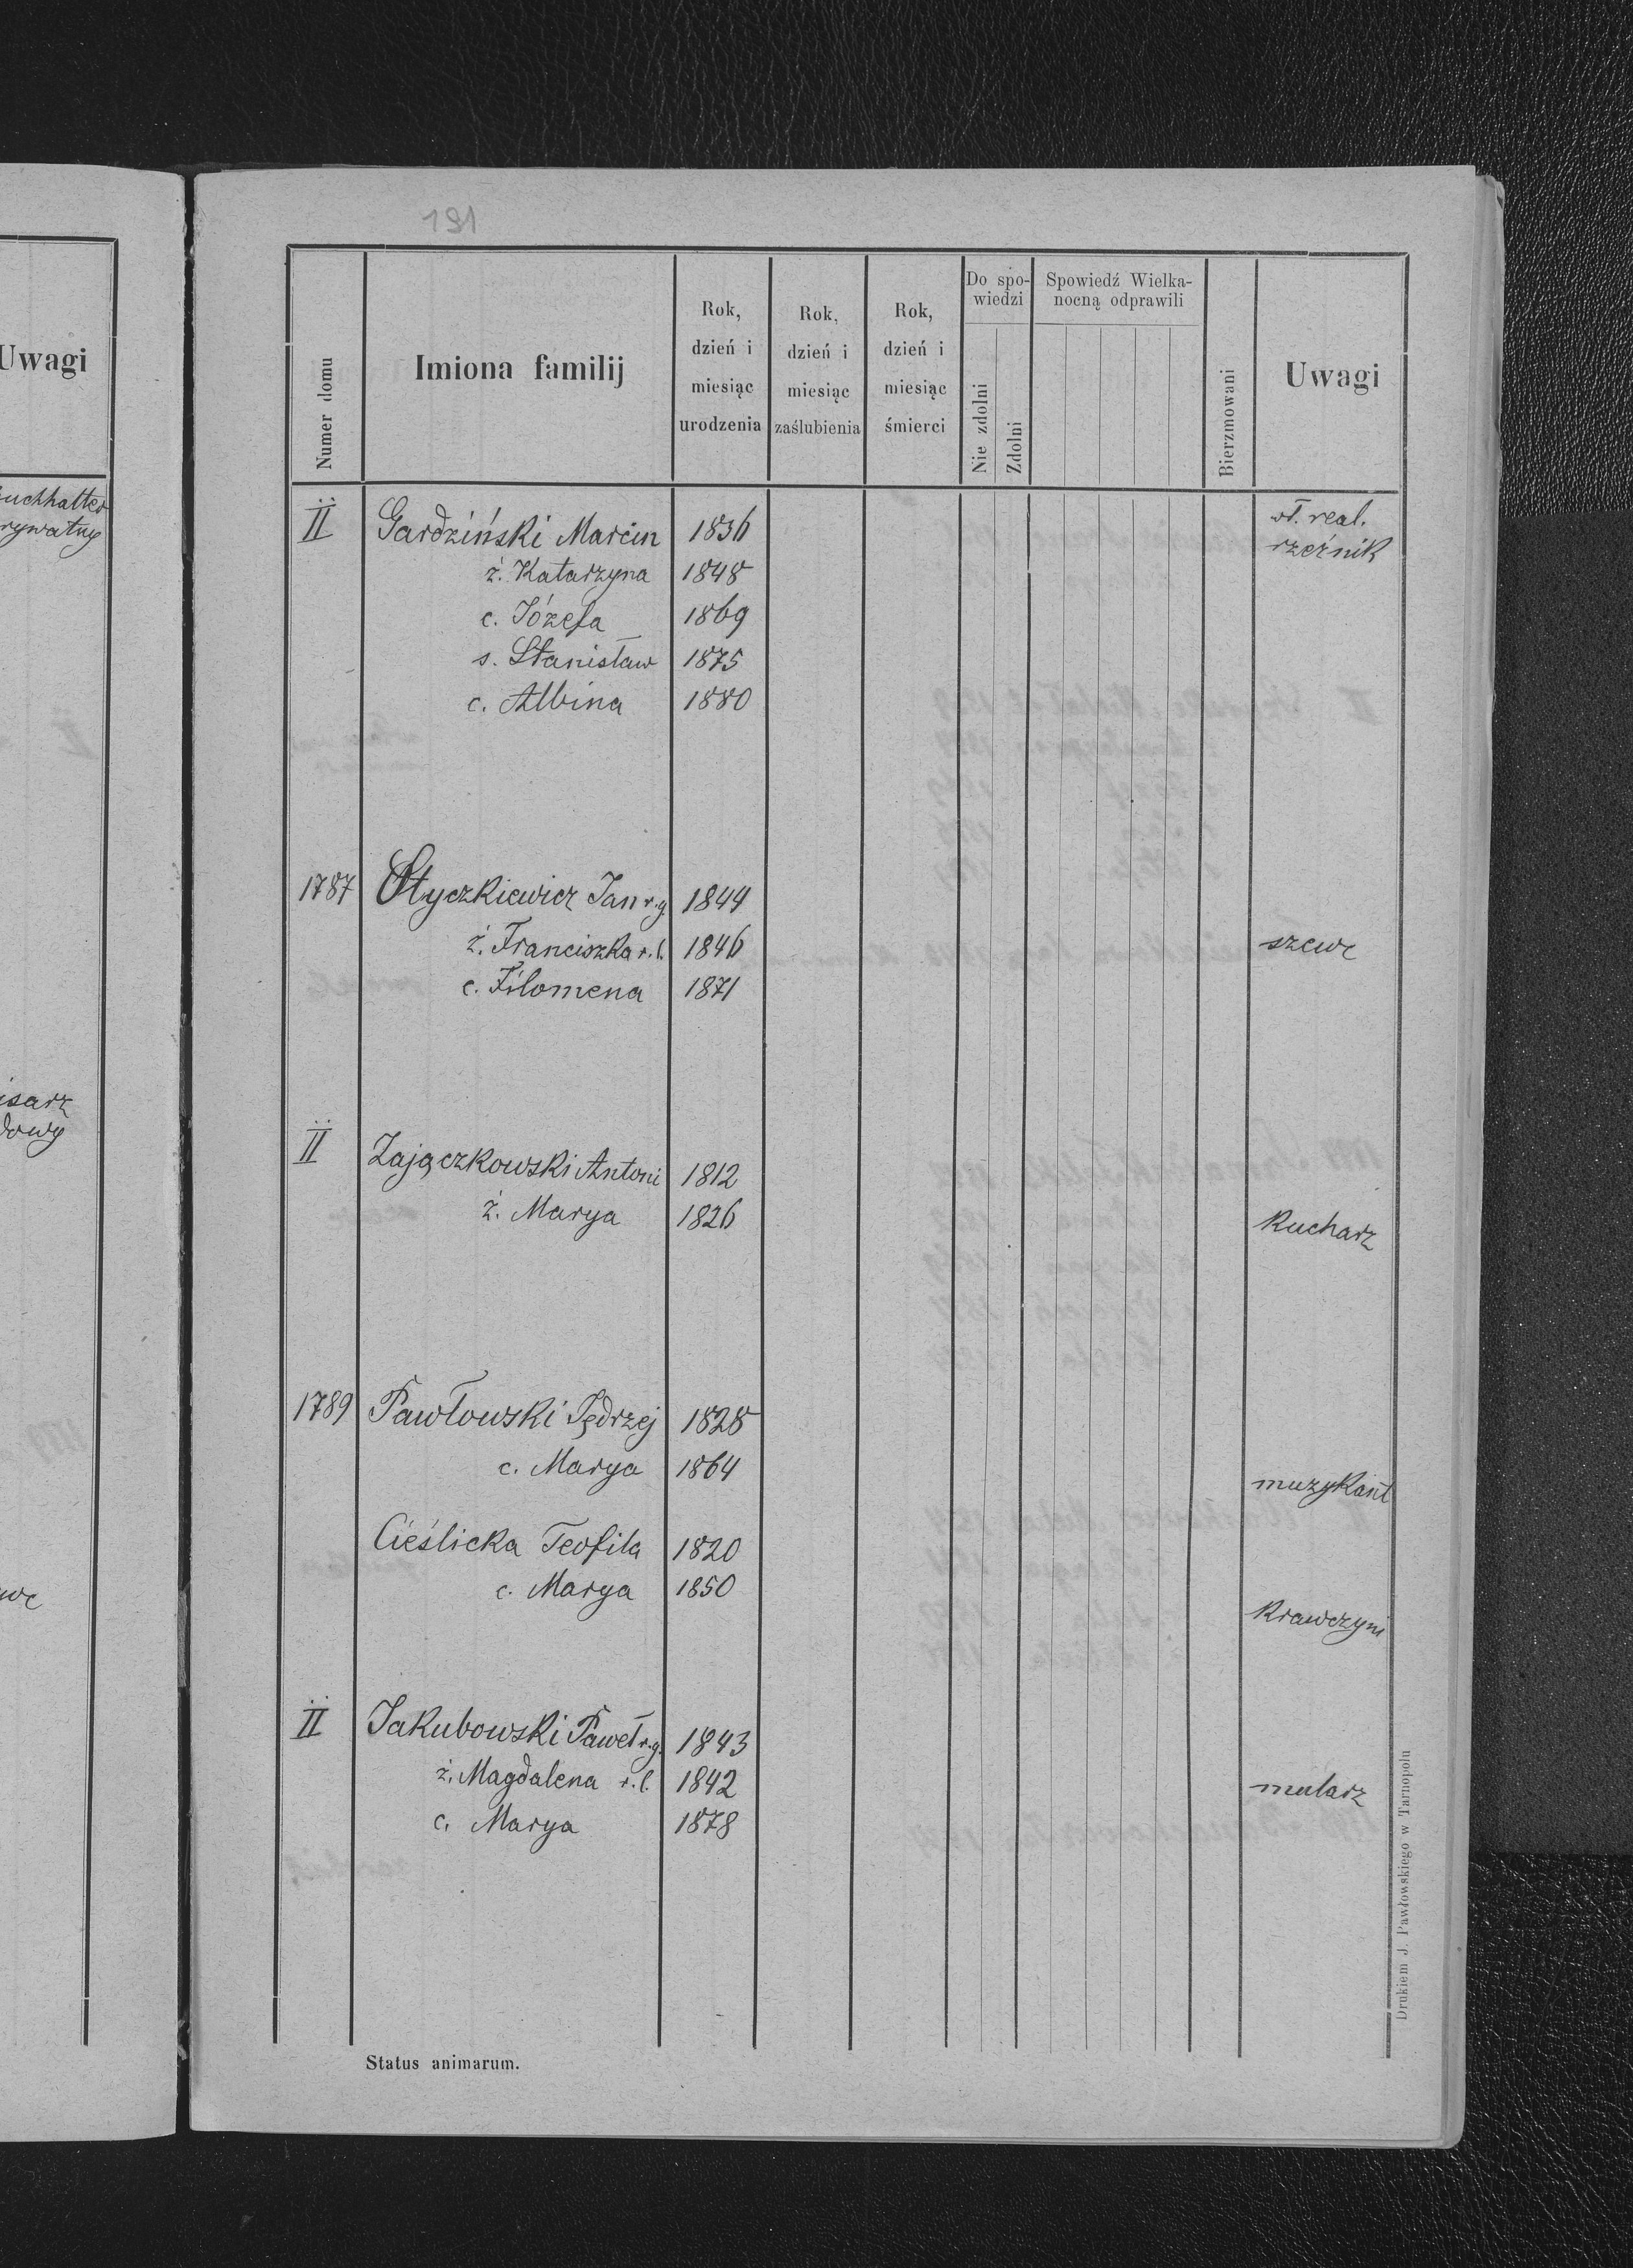 191
Uwagi
uchhalter
rywatny
isarz
dowy
Numer domu
Imiona familij
Rok, dzień i miesiąc urodzenia
Rok, dzień i miesiąc zaślubienia
Rok, dzień i miesiąc śmierci
Do spo-
wiedzi
Nie zdolni
Zdolni
Spowiedź Wielka-
nocną odprawili
Bierzmowani
Uwagi
II Gardziński Marcin 1836 wł. real.
rzeźnik
ż. Katarzyna 1848
c. Józefa 1869
s. Stanisław 1875
c. Albina 1880
1787 Styczkiewicz Jan r.g. 1844
ż. Franciszka r.l. 1846 szewc
c. Filomena 1871
II Zajączkowski Antoni 1812
ż. Marya 1826 Kucharz
1789 Pawłowski Jędrzej 1828
c. Marya 1864 muzykant
Cieślicka Teofila 1820
c. Marya 1850 Krawczyni
II Jakubowski Paweł r.g. 1843
ż. Magdalena r.l. 1842 mularz
c. Marya 1878
Status animarum.
Drukiem J. Pawłowskiego w Tarnopolu